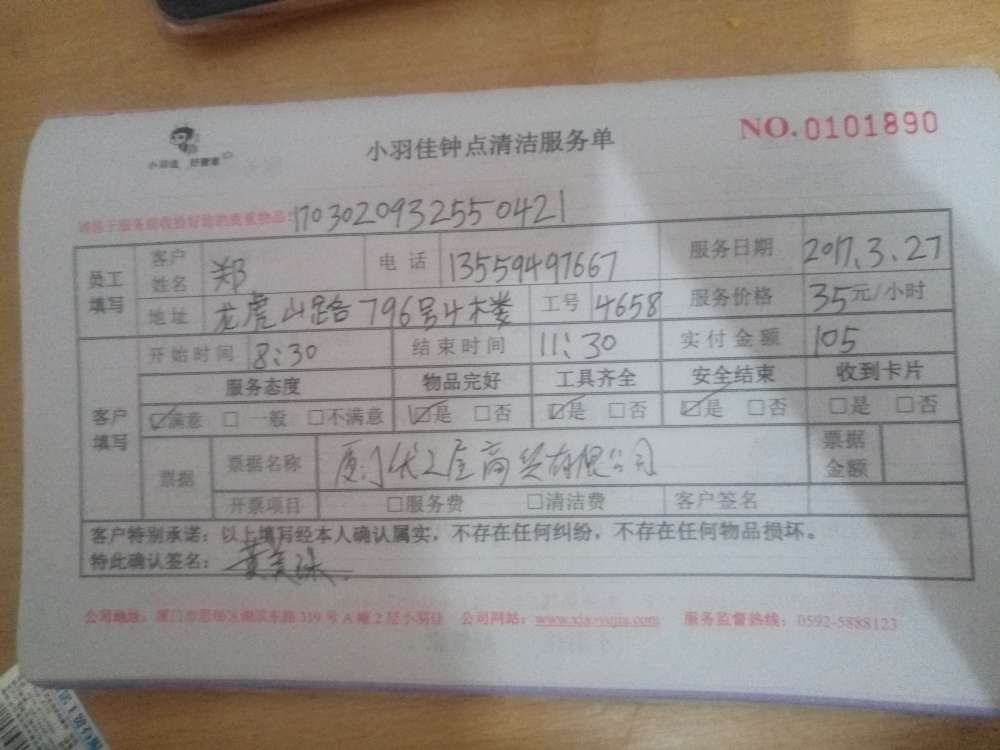 小羽佳钟点清洁服务单
NO.0101890
小羽佳 好管家
请您于服务前收拾好您的贵重物品! 170302093255 0421
员工填写 客户姓名 郑 电话 13559497667 服务日期 2017.3.27
地址 龙虎山路796号4楼 工号 4658 服务价格 35元/小时
客户填写 开始时间 8:30 结束时间 11:30 实付金额 105
服务态度 物品完好 工具齐全 安全结束 收到卡片
☑满意 □一般 □不满意 ☑是 □否 ☑是 □否 ☑是 □否 □是 □否
票据 票据名称 厦门优之屋商贸有限公司 票据金额
开票项目 □服务费 □清洁费 客户签名
客户特别承诺：以上填写经本人确认属实，不存在任何纠纷，不存在任何物品损坏。
特此确认签名：黄
公司地址：厦门市思明区湖滨东路319号A幢2层小羽佳 公司网站：www.xiaoyujia.com 服务监督热线：0592-5888123